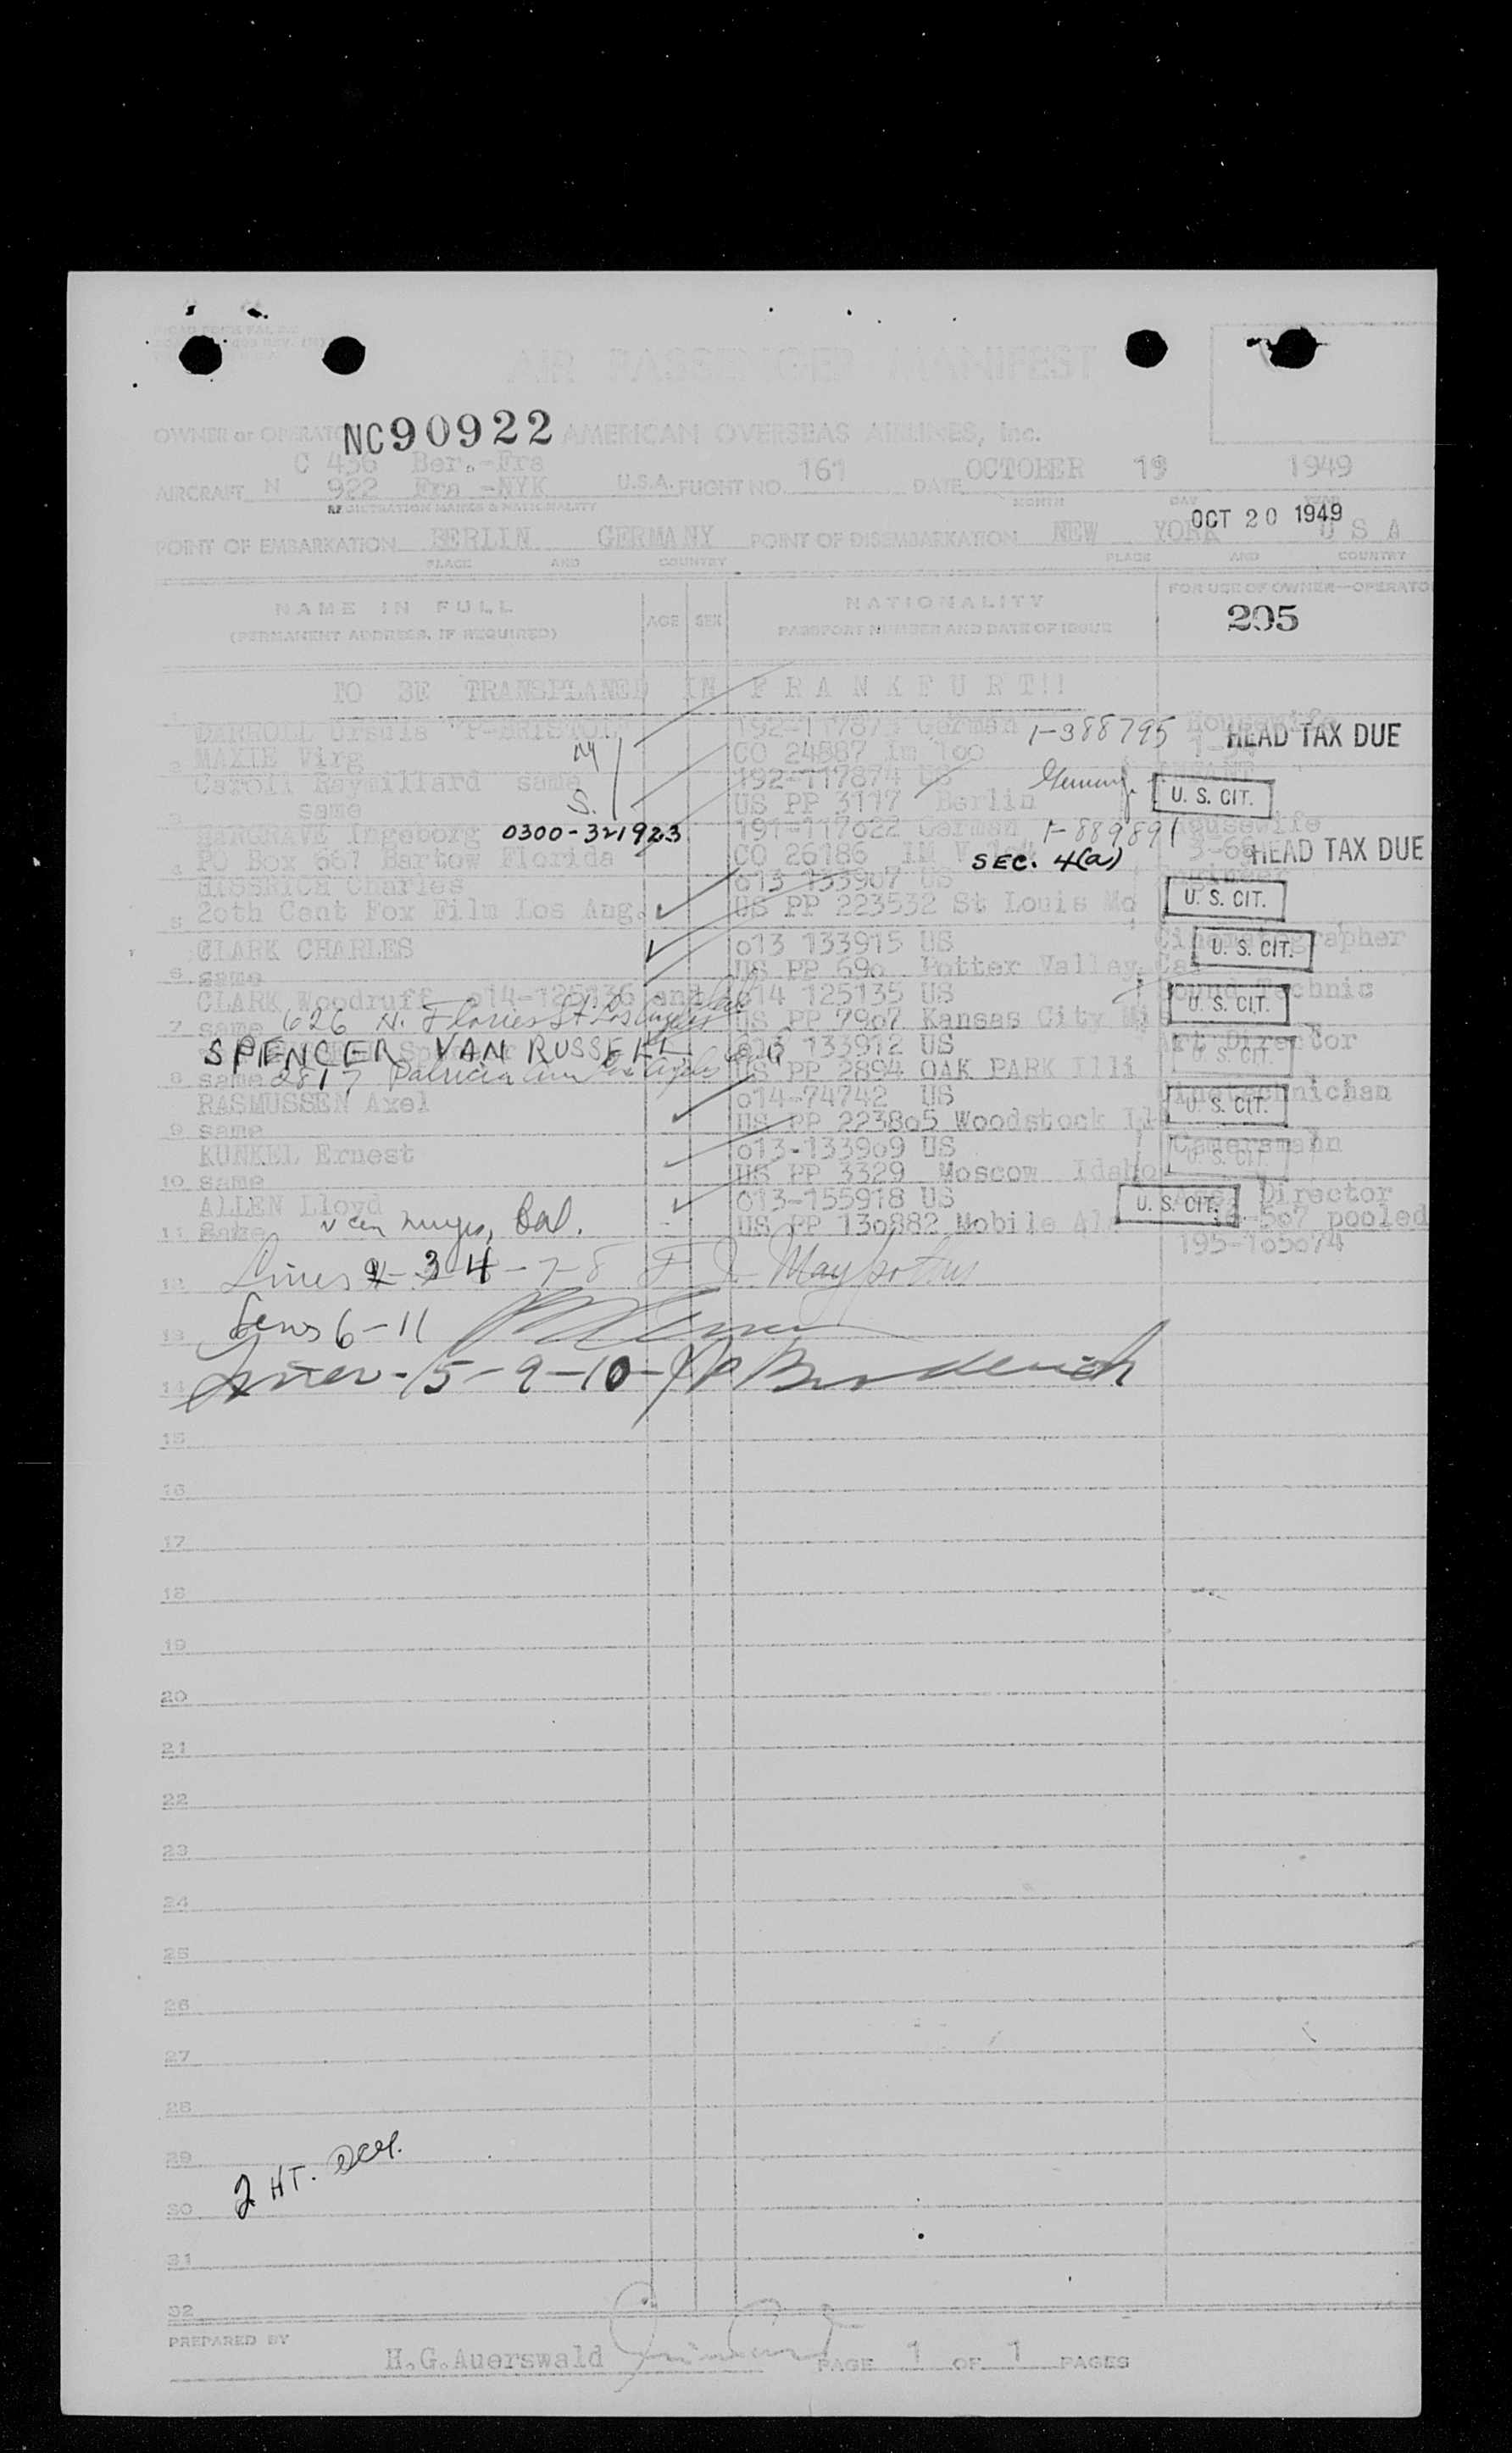 AIR PASSENGER MANIFEST
OWNER or OPERATOR NC90922 AMERICAN OVERSEAS AIRLINES, Inc.
C 436 Ber.-Fra
AIRCRAFT N 922 Fra -NYK U.S.A. FLIGHT NO. 161 DATE OCTOBER 19 1949
REGISTRATION MARKS & NATIONALITY MONTH DAY YEAR
OCT 20 1949
POINT OF EMBARKATION BERLIN GERMANY POINT OF DISEMBARKATION NEW YORK U S A
PLACE AND COUNTRY PLACE AND COUNTRY
NAME IN FULL AGE SEX NATIONALITY FOR USE OF OWNER—OPERATO
(PERMANENT ADDRESS, IF REQUIRED) PASSPORT NUMBER AND DATE OF ISSUE 295
TO BE TRANSPLANED IN F R A N K F U R T!!
Ursula P-BRISTOL 192-117873 German 1-388795 Housewife
2 MAXIE Virg M CO 24587 Im 100 HEAD TAX DUE
Caroll Raymillard same 192-117874 US Germany. INFANT
3 same S. US PP 3117 Berlin U. S. CIT.
HARGRAVE Ingeborg 0300-321923 191-117622 German 1-889891 Housewife
4 PO Box 661 Bartow Florida CO 26186 IM V SEC. 4(a) HEAD TAX DUE
Charles 013 133907 US Engineer
5 20th Cent Fox Film Los Ang. US PP 223532 St Louis Mo U. S. CIT.
CLARK CHARLES 013 133915 US Cinematographer
6 same US PP 690 Potter Valley Ca U. S. CIT.
CLARK Woodruff 014-125136 and 014 125135 US Sound Technic
7 same 626 N. St. Los Angeles US PP 7907 Kansas City Mi U. S. CIT.
SPENCER VAN RUSSELL 013 133912 US Art Director
8 same 2817 Patricia Los Angeles US PP 2894 OAK PARK Illi U S CIT.
RASMUSSEN Axel 014-74742 US Cinetechnichan
9 same US PP 223805 Woodstock Il U. S. CIT.
KUNKEL Ernest 013-133909 US Cameramann
10 same US PP 3329 Moscow Idaho U. S. CIT.
ALLEN Lloyd 013-155918 US Director
11 same Van Nuys, Cal. US PP 130882 Mobile Ala U. S. CIT. 507 pooled
195-105074
12 Lines 2-3-4-7-8
13 Lines 6-11
14 Lines-5-9-10- Broderick
15
16
17
18
19
20
21
22
23
24
25
26
27
28
29
2 HT.
30
31
32
PREPARED BY
H.G.Auerswald PAGE 1 OF 1 PAGES